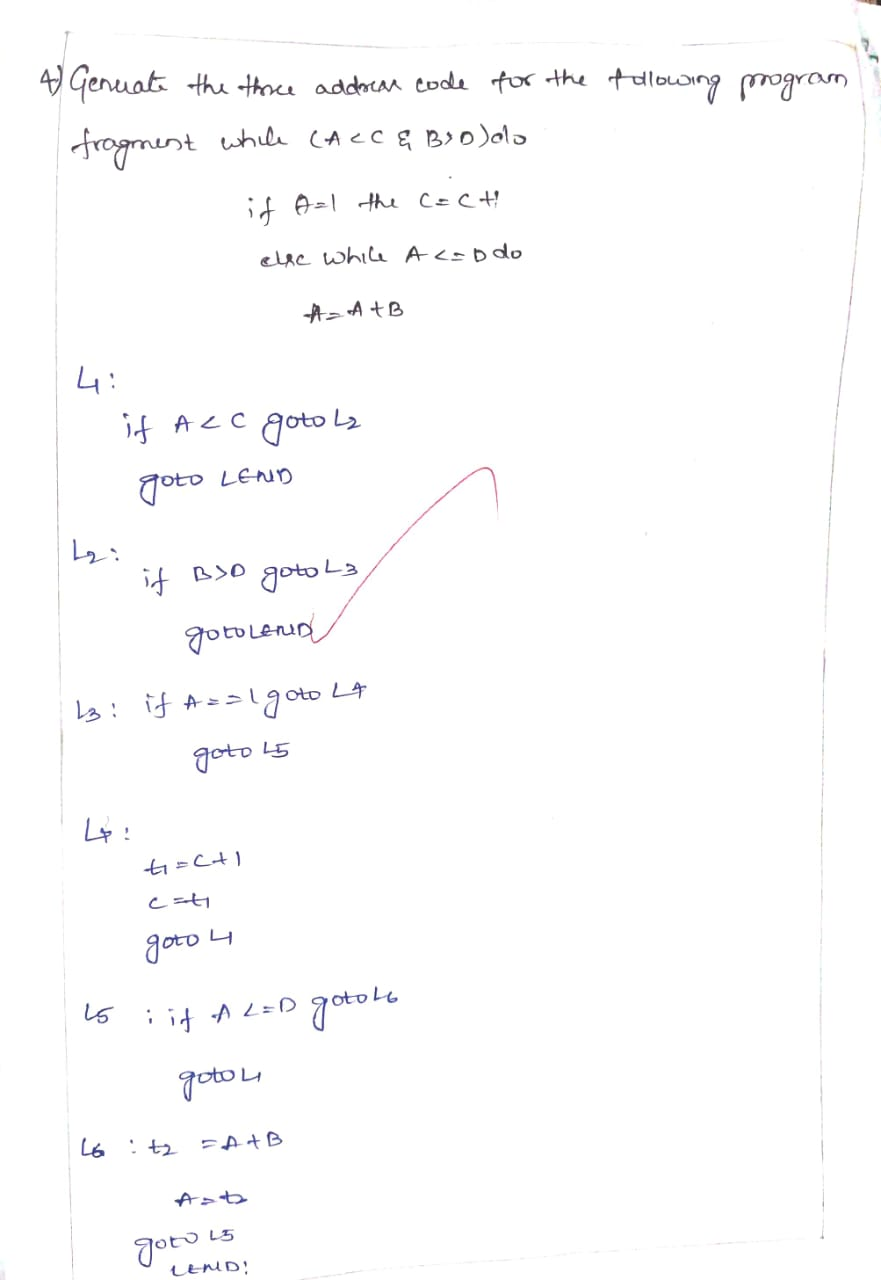 4) Generate the three address code for the following program
fragment while (A < C & B > D) do
if A=1 the C = C+1
else while A <= D do
A = A + B
L1:
if A < C goto L2
goto LEND
L2:
if B>D goto L3
goto LEND
L3: if A==1 goto L4
goto L5
L4:
t1 = C+1
c = t1
goto L1
L5 : if A <= D goto L6
goto L1
L6 : t2 = A+B
A = t2
goto L5
LEND: